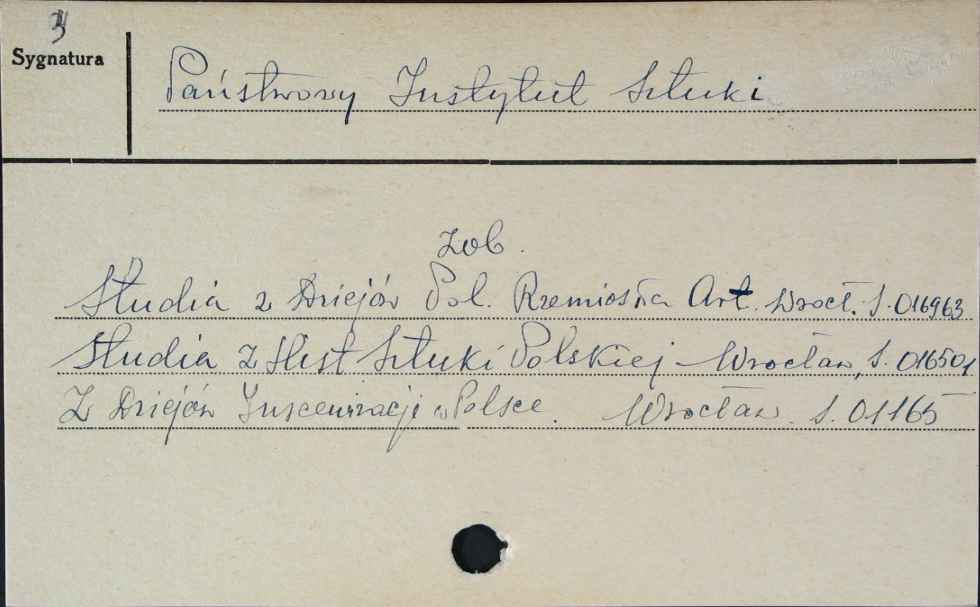 3
Sygnatura
Państwowy Instytut Sztuki
zob.
Studia z Dziejów Pol. Rzemiosła Art. Wrocł. S. 016963
Studia z Hist Sztuki Polskiej - Wrocław, S. 016501
Z Dziejów Inscenizacji w Polsce. Wrocław. S. 01165